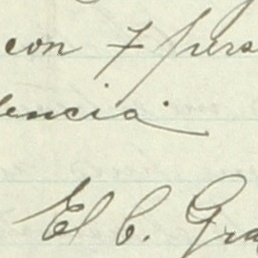 con 7 pers
dencia
El C. Gra